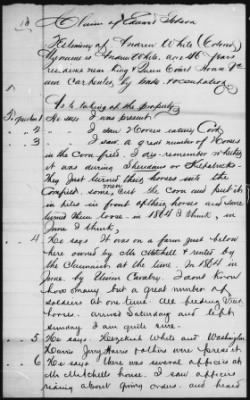 18
Claim of Edward Hobson
Testimony of Andrew White (Colored)
My name is Andrew White, am 46 years
residence near King & Queen Court House Va
am Carpenter, by trade & occupation
As to taking of the property
1 He says I was present
" 2 " I saw Horses eating Corn
3 " I saw a great number of Horses
in the Corn field. I dis-remember whether
it was during Sheridans or Kilpatricks
They just turned their horses into the
Cornfield. some men cut the Corn and put it
in piles in front of their horses and some
turned them loose in 1864 I think, in
June I think,
" 4 He says It was on a farm just below
here owned by Mr Mitchell & rented by
the Claimant at the time. In 1864 in
June. by Union Cavalry. I dont know
how many but a great number of
soldiers at one time. All feeding their
horses. arrived Saturday and left
Sunday I am quite sure.
" 5 He says Hezekiah White and Washington
Davis Jerry Harris & others were present
" 6 He says there was several officers at
Mr Mitchells house. I saw officers
riding about giving orders. and heard